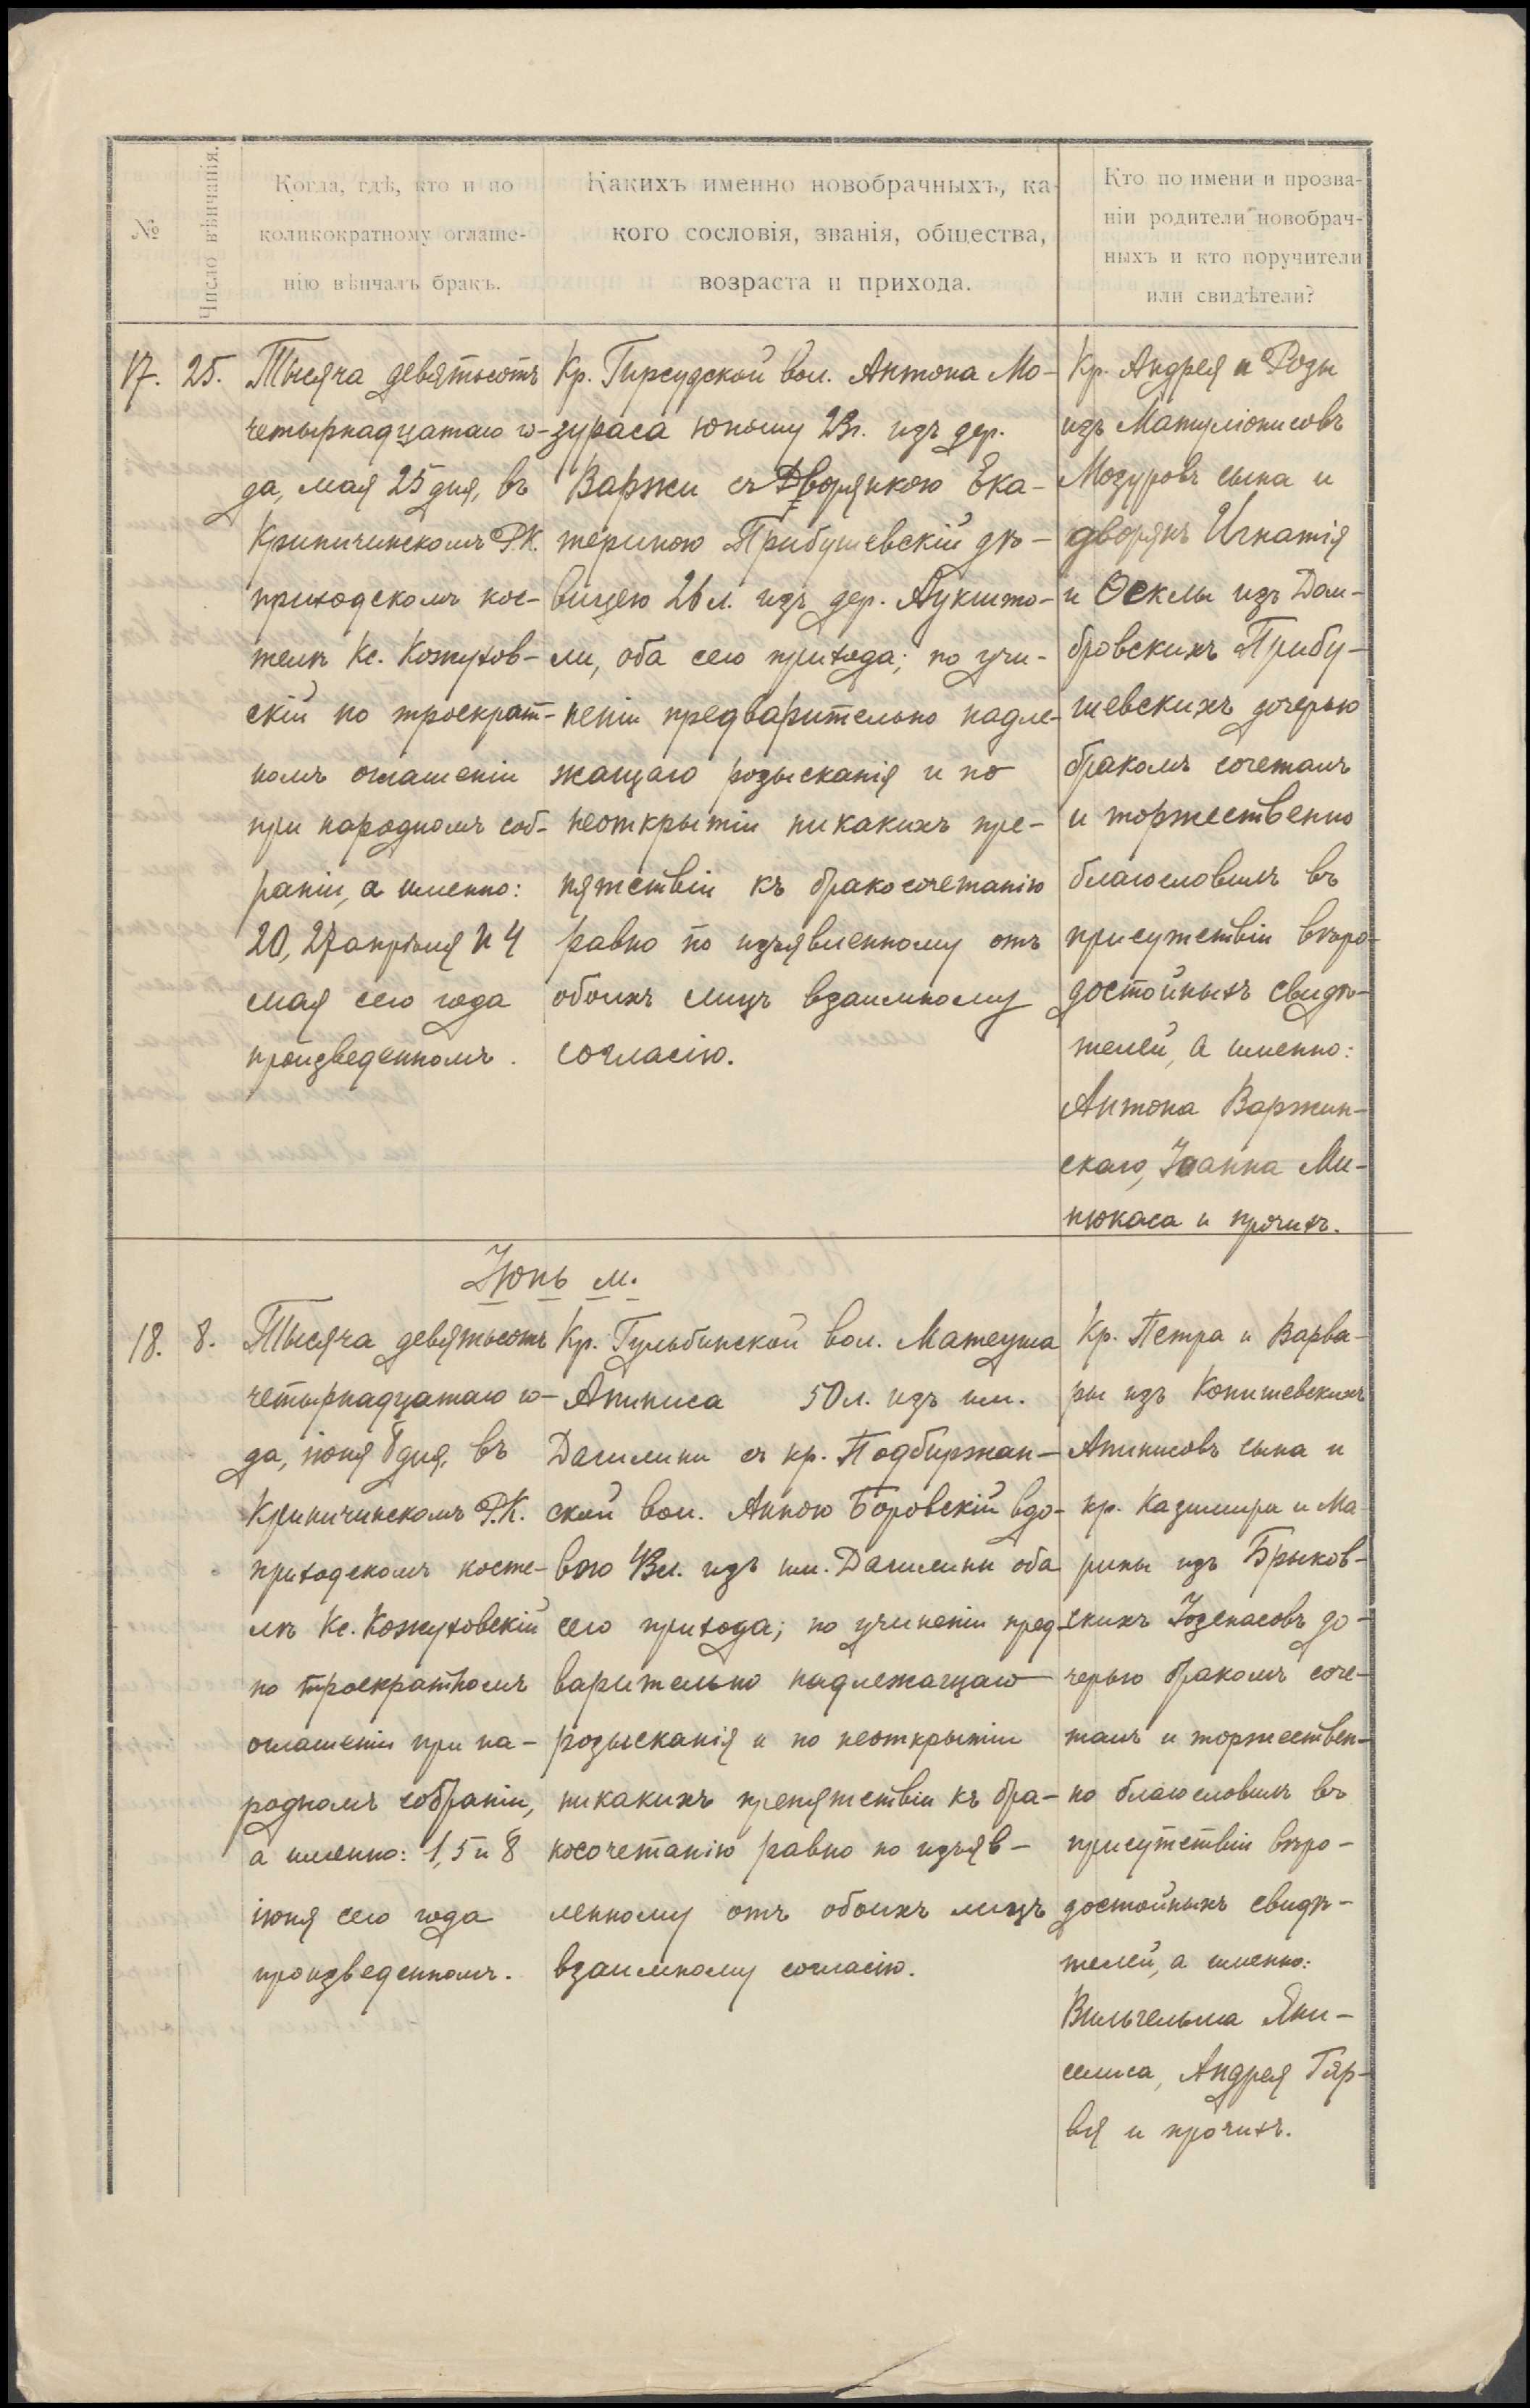 №
Число вѣнчанія.
Когда, гдѣ, кто и по
коликократному оглаше-
нію вѣнчалъ бракъ.
Какихъ именно новобрачныхъ, ка-
кого сословія, званія, общества,
возраста и прихода.
Кто по имени и прозва-
ніи родители новобрач-
ныхъ и кто поручители
или свидѣтели?
17.
25.
Тысяча девятьсотъ
четырнадцатаго го-
да, мая 25 дня, въ
Криничинскомъ Р.К.
приходскомъ кос-
телѣ Кс. Кожухов-
скій по троекрат-
номъ оглашеніи
при народномъ соб-
раніи, а именно:
20, 27 апрѣля и 4
мая сего года
произведенномъ.
Кр. Гирсудской вол. Антона Мо-
зураса юношу 23г. изъ дер.
Варжи съ Дворянкою Ека-
териною Прибушевскій дѣ-
вицею 26 л. изъ дер. Аукшто-
ли, оба сего прихода; по учи-
неніи предварительно надле-
жащаго розысканія и по
неоткрытіи никакихъ пре-
пятствіи къ бракосочетанію
равно по изъявленному отъ
обоихъ лицъ взаимному
согласію.
Кр. Андрея и Розы
изъ Матуліонисовъ
Мозуровъ сына и
дворянъ Игнатія
и Θеклы изъ Дом-
бровскихъ Прибу-
шевскихъ дочерью
бракомъ сочеталъ
и торжественно
благословилъ въ
присутствіи вѣро-
достойныхъ свидѣ-
телей, а именно:
Антона Варжин-
скаго, Іоанна Ми-
нюкаса и прочихъ.
Іюнь м.
18.
8.
Тысяча девятьсотъ
четырнадцатаго го-
да, іюня 8 дня, въ
Криничинскомъ Р.К.
приходскомъ косте-
лѣ Кс. Кожуховскій
по троекратномъ
оглашеніи при на-
родномъ собраніи,
а именно: 1, 5 и 8
іюня сего года
произведенномъ.
Кр. Гульбинской вол. Матеуша
Апиниса 50 л. изъ им.
Дагилини съ кр. Подбиржан-
ской вол. Анною Боровскій вдо-
вою 43л. изъ им. Дагилини оба
сего прихода; по учиненіи пред-
варительно надлежащаго
розысканія и по неоткрытіи
никакихъ препятствіи къ бра-
косочетанію равно по изъяв-
ленному отъ обоихъ лицъ
взаимному согласію.
Кр. Петра и Варва-
ры изъ Конишевскихъ
Апинисовъ сына и
кр. Казимира и Ма-
рины изъ Брыков-
скихъ Іозенасовъ до-
черью бракомъ соче-
талъ и торжествен-
но благословилъ въ
присутствіи вѣро-
достойныхъ свидѣ-
телей, а именно:
Вильгельма Яни-
селиса, Андрея Гяр-
вя и прочихъ.